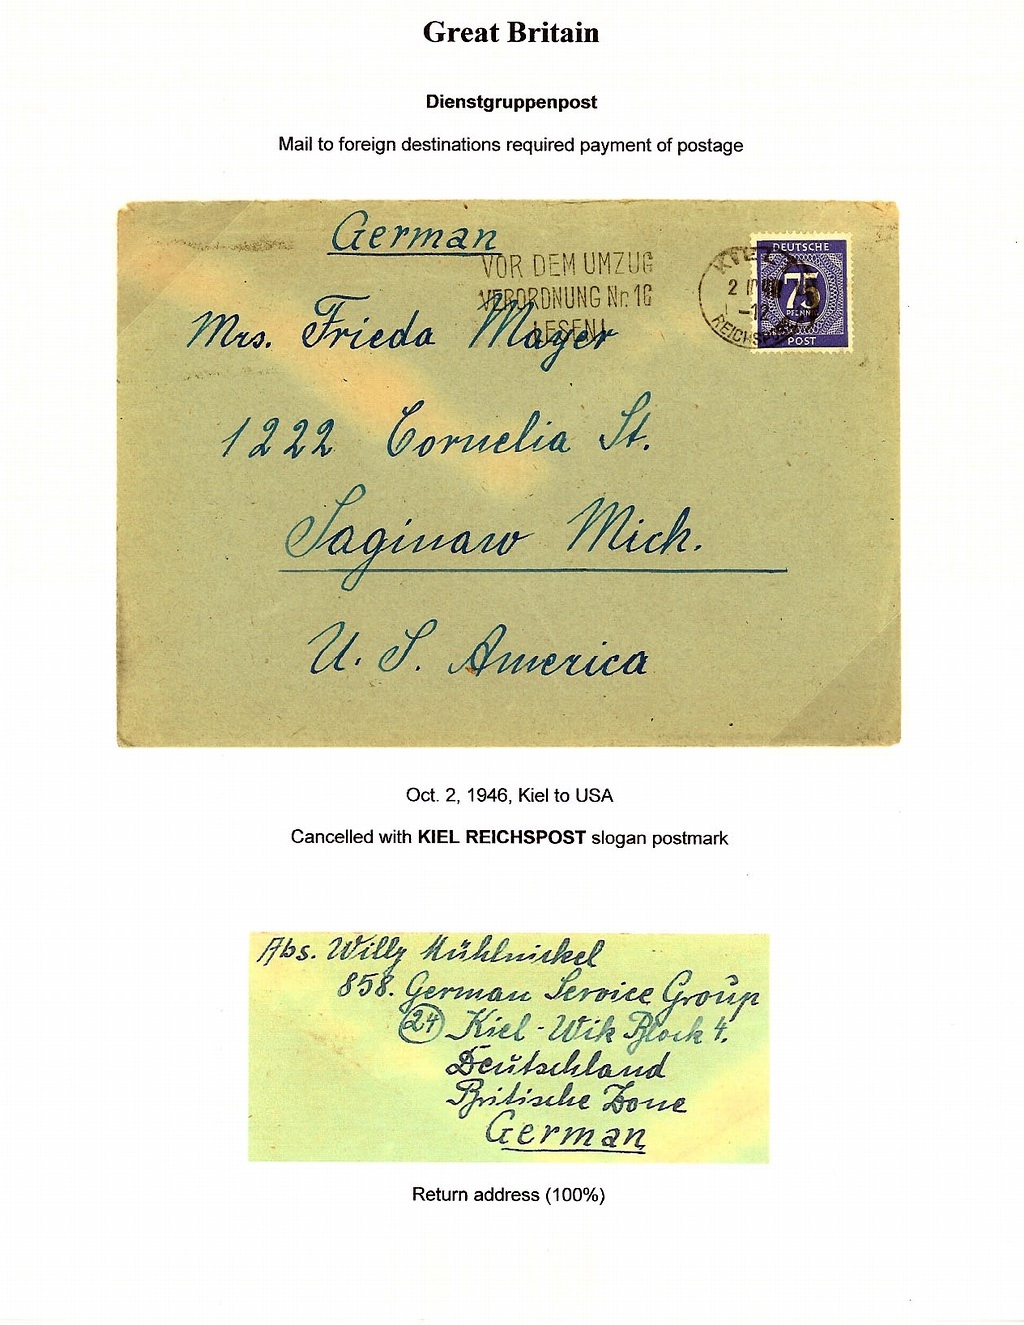 Great Britain
Dienstgruppenpost
Mail to foreign destinations required payment of postage
German
VOR DEM UMZUG
VERORDNUNG Nr. 16
LESEN!
KIEL
2
REICHSPOST
DEUTSCHE
75
PFENNIG
POST
Mrs. Frieda Mayer
1222 Cornelia St.
Saginaw Mich.
U. S. America
Oct. 2, 1946, Kiel to USA
Cancelled with KIEL REICHSPOST slogan postmark
Abs. Willy Mühlnickel
858. German Service Group
24 Kiel-Wik Block 4.
Deutschland
Britische Zone
German
Return address (100%)